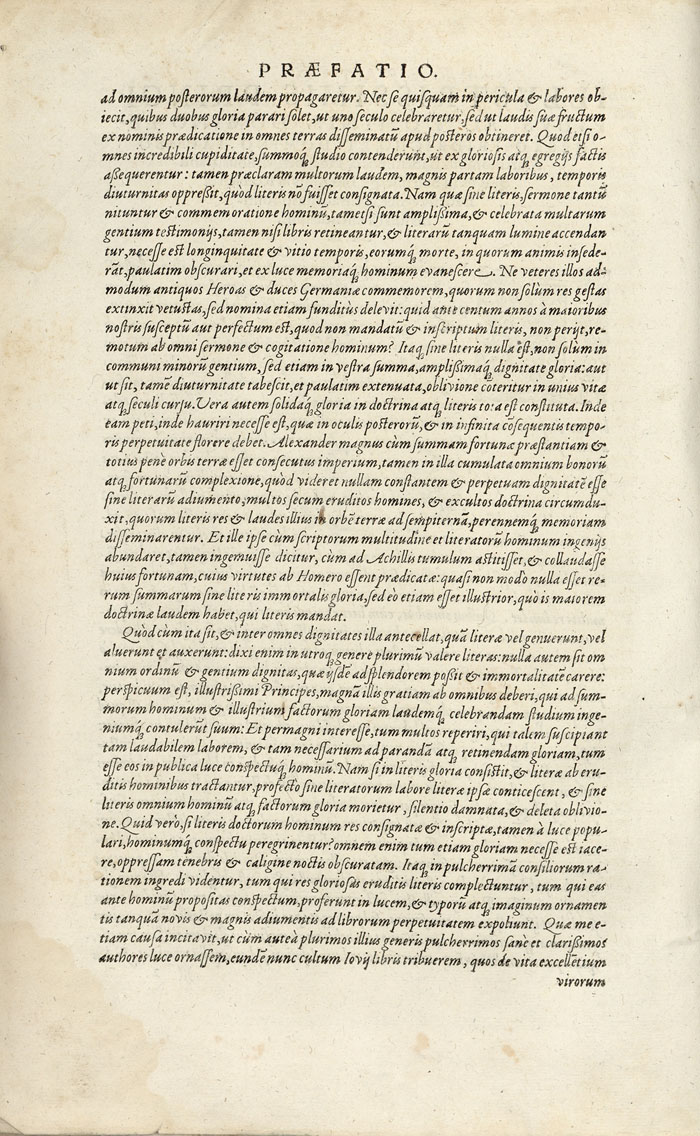 PRÆFATIO.
ad omnium posterorum laudem propagaretur. Nec se quisquam in pericula & labores ob-
iecit, quibus duobus gloria parari solet, ut uno seculo celebraretur, sed ut laudis suæ fructum
ex nominis prædicatione in omnes terras disseminatū apud posteros obtineret. Quod etsi o-
mnes incredibili cupiditate, summoq́; studio contenderunt, ut ex gloriosis atq; egregijs factis
assequerentur: tamen præclaram multorum laudem, magnis partam laboribus, temporis
diuturnitas oppressit, quòd literis nō fuisset consignata. Nam quæ sine literis, sermone tantū
nituntur & commemoratione hominū, tametsi sunt amplissima, & celebrata multarum
gentium testimonijs, tamen nisi libris retineantur, & literarū tanquam lumine accendan
tur, necesse est longinquitate & vitio temporis, eorumq́; morte, in quorum animis insede-
rāt, paulatim obscurari, et ex luce memoriaq́; hominum evanescere. Ne veteres illos ad-
modum antiquos Heroas & duces Germaniæ commemorem, quorum non solùm res gestas
extinxit vetustas, sed nomina etiam funditùs delevit: quid ante centum annos à maioribus
nostris susceptū aut perfectum est, quod non mandatū & inscriptum literis, non perijt, re-
motum ab omni sermone & cogitatione hominum? Itaq; sine literis nulla est, non solùm in
communi minorū gentium, sed etiam in vestra summa, amplissimaq́; dignitate gloria: aut
ut sit, tamē diuturnitate tabescit, et paulatim extenuata, oblivione cōteritur in unius vitæ
atq; seculi cursu. Vera autem solidaq́; gloria in doctrina atq; literis tota est constituta. Inde
eam peti, inde hauriri necesse est, quæ in oculis posterorū, & in infinita cōsequentis tempo-
ris perpetuitate florere debet. Alexander magnus cùm summam fortunæ præstantiam &
totius penè orbis terræ esset consecutus imperium, tamen in illa cumulata omnium bonorū
atq; fortunarū complexione, quòd videret nullam constantem & perpetuam dignitatē esse
sine literarū adiumento, multos secum eruditos homines, & excultos doctrina circumdu-
xit, quorum literis res & laudes illius in orbē terræ ad sempiternā, perennemq́; memoriam
disseminarentur. Et ille ipse cùm scriptorum multitudine et literatorū hominum ingenijs
abundaret, tamen ingemuisse dicitur, cùm ad Achillis tumulum astitisset, & collaudasse
huius fortunam, cuius virtutes ab Homero essent prædicatæ: quasi non modo nulla esset re-
rum summarum sine literis immortalis gloria, sed eo etiam esset illustrior, quò is maiorem
doctrinæ laudem habet, qui literis mandat.
Quòd cùm ita sit, & inter omnes dignitates illa antecellat, quā literæ vel genuerunt, vel
aluerunt et auxerunt: dixi enim in utroq; genere plurimū valere literas: nulla autem sit om
nium ordinū & gentium dignitas, quæ ijsdē ad splendorem possit & immortalitatē carere:
perspicuum est, illustrissimi Principes, magnā illis gratiam ab omnibus deberi, qui ad sum-
morum hominum & illustrium factorum gloriam laudemq́; celebrandam studium inge-
niumq́; contulerūt suum: Et permagni interesse, tum multos reperiri, qui talem suscipiant
tam laudabilem laborem, & tam necessarium ad parandā atq; retinendam gloriam, tum
esse eos in publica luce conspectuq́; hominū. Nam si in literis gloria consistit, & literæ ab eru-
ditis hominibus tractantur, profectò sine literatorum labore literæ ipsæ conticescent, & sine
literis omnium hominū atq; factorum gloria morietur, silentio damnata, & deleta oblivio-
ne. Quid verò, si literis doctorum hominum res consignatæ & inscriptæ, tamen à luce popu-
lari, hominumq́; conspectu peregrinentur? omnem enim tum etiam gloriam necesse est iace-
re, oppressam tenebris & caligine noctis obscuratam. Itaq; in pulcherrima consiliorum ra-
tionem ingredi videntur, tum qui res gloriosas eruditis literis complectuntur, tum qui eas
ante hominū propositas conspectum, proferunt in lucem, & typorū atq; imaginum ornamen
tis tanquā novis & magnis adiumentis ad librorum perpetuitatem expoliunt. Quæ me e-
tiam causa incitavit, ut cùm anteà plurimos illius generis pulcherrimos sanè et clarissimos
authores luce ornassem, eundē nunc cultum Iovij libris tribuerem, quos de vita excellētium
virorum